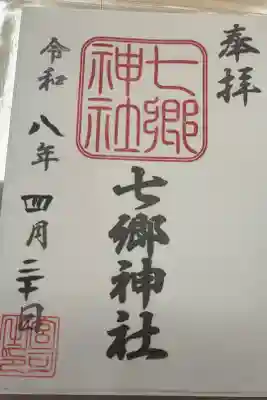 奉拝
七郷
神社
七郷神社
令和八年四月二十日
宮司之印